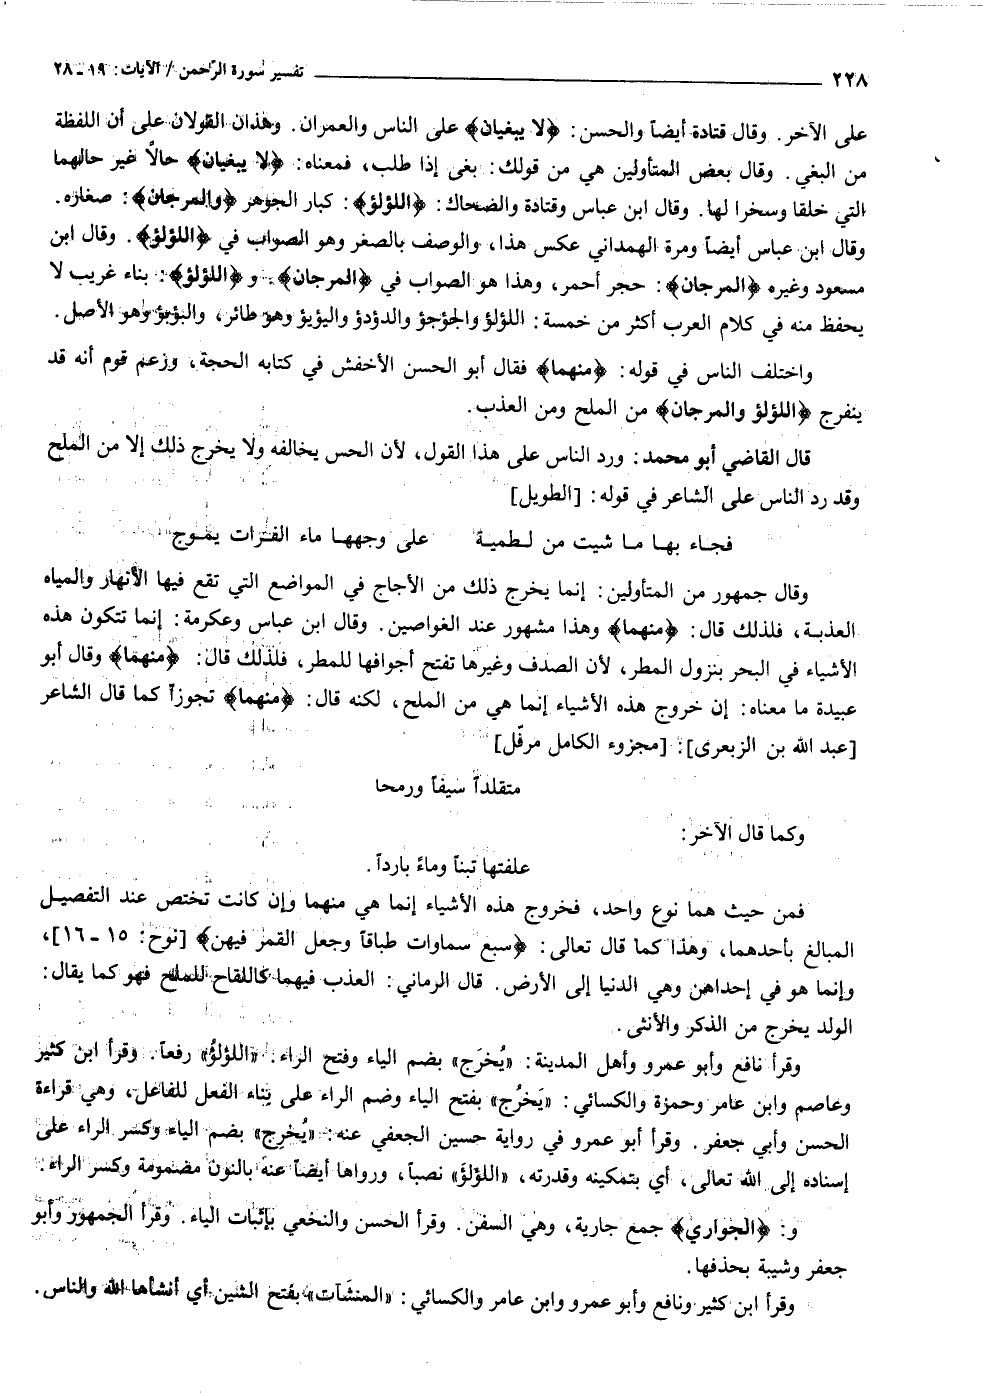 ٢٢٨ تفسير سورة الرحمن / الآيات: ١٩ - ٢٨
على الآخر. وقال قتادة أيضاً والحسن: ﴿لا يبغيان﴾ على الناس والعمران. وهذان القولان على أن اللفظة
من البغي. وقال بعض المتأولين هي من قولك: بغى إذا طلب، فمعناه: ﴿لا يبغيان﴾ حالاً غير حالهما
التي خلقا وسخرا لها. وقال ابن عباس وقتادة والضحاك: ﴿اللؤلؤ﴾: كبار الجوهر ﴿والمرجان﴾: صغاره.
وقال ابن عباس أيضاً ومرة الهمداني عكس هذا، والوصف بالصغر وهو الصواب في ﴿اللؤلؤ﴾. وقال ابن
مسعود وغيره ﴿المرجان﴾: حجر أحمر، وهذا هو الصواب في ﴿المرجان﴾. و ﴿اللؤلؤ﴾: بناء غريب لا
يحفظ منه في كلام العرب أكثر من خمسة: اللؤلؤ والجؤجؤ والدؤدؤ واليؤيؤ وهو طائر، والبؤبؤ وهو الأصل.
واختلف الناس في قوله: ﴿منهما﴾ فقال أبو الحسن الأخفش في كتابه الحجة، وزعم قوم أنه قد
ينفرج ﴿اللؤلؤ والمرجان﴾ من الملح ومن العذب.
قال القاضي أبو محمد: ورد الناس على هذا القول، لأن الحس يخالفه ولا يخرج ذلك إلا من الملح
وقد رد الناس على الشاعر في قوله: [الطويل]
فجاء بها ما شيت من لطمية على وجهها ماء الفرات يموج
وقال جمهور من المتأولين: إنما يخرج ذلك من الأجاج في المواضع التي تقع فيها الأنهار والمياه
العذبة، فلذلك قال: ﴿منهما﴾ وهذا مشهور عند الغواصين. وقال ابن عباس وعكرمة: إنما تتكون هذه
الأشياء في البحر بنزول المطر، لأن الصدف وغيرها تفتح أجوافها للمطر، فلذلك قال: ﴿منهما﴾ وقال أبو
عبيدة ما معناه: إن خروج هذه الأشياء إنما هي من الملح، لكنه قال: ﴿منهما﴾ تجوزاً كما قال الشاعر
[عبد الله بن الزبعرى]: [مجزوء الكامل مرفّل]
متقلداً سيفاً ورمحا
وكما قال الآخر:
علفتها تبناً وماءً بارداً.
فمن حيث هما نوع واحد، فخروج هذه الأشياء إنما هي منهما وإن كانت تختص عند التفصيل
المبالغ بأحدهما، وهذا كما قال تعالى: ﴿سبع سماوات طباقاً وجعل القمر فيهن﴾ [نوح: ١٥ - ١٦]،
وإنما هو في إحداهن وهي الدنيا إلى الأرض. قال الرماني: العذب فيهما كاللقاح للملح فهو كما يقال:
الولد يخرج من الذكر والأنثى.
وقرأ نافع وأبو عمرو وأهل المدينة: «يُخرَج» بضم الياء وفتح الراء. «اللؤلؤُ» رفعاً. وقرأ ابن كثير
وعاصم وابن عامر وحمزة والكسائي: «يَخرُج» بفتح الياء وضم الراء على بناء الفعل للفاعل، وهي قراءة
الحسن وأبي جعفر. وقرأ أبو عمرو في رواية حسين الجعفي عنه: «يُخرِج» بضم الياء وكسر الراء على
إسناده إلى الله تعالى، أي بتمكينه وقدرته، «اللؤلؤَ» نصباً، ورواها أيضاً عنه بالنون مضمومة وكسر الراء.
و: ﴿الجواري﴾ جمع جارية، وهي السفن. وقرأ الحسن والنخعي بإثبات الياء. وقرأ الجمهور وأبو
جعفر وشيبة بحذفها.
وقرأ ابن كثير ونافع وأبو عمرو وابن عامر والكسائي: «المنشَآت» بفتح الشين أي أنشأها الله والناس.